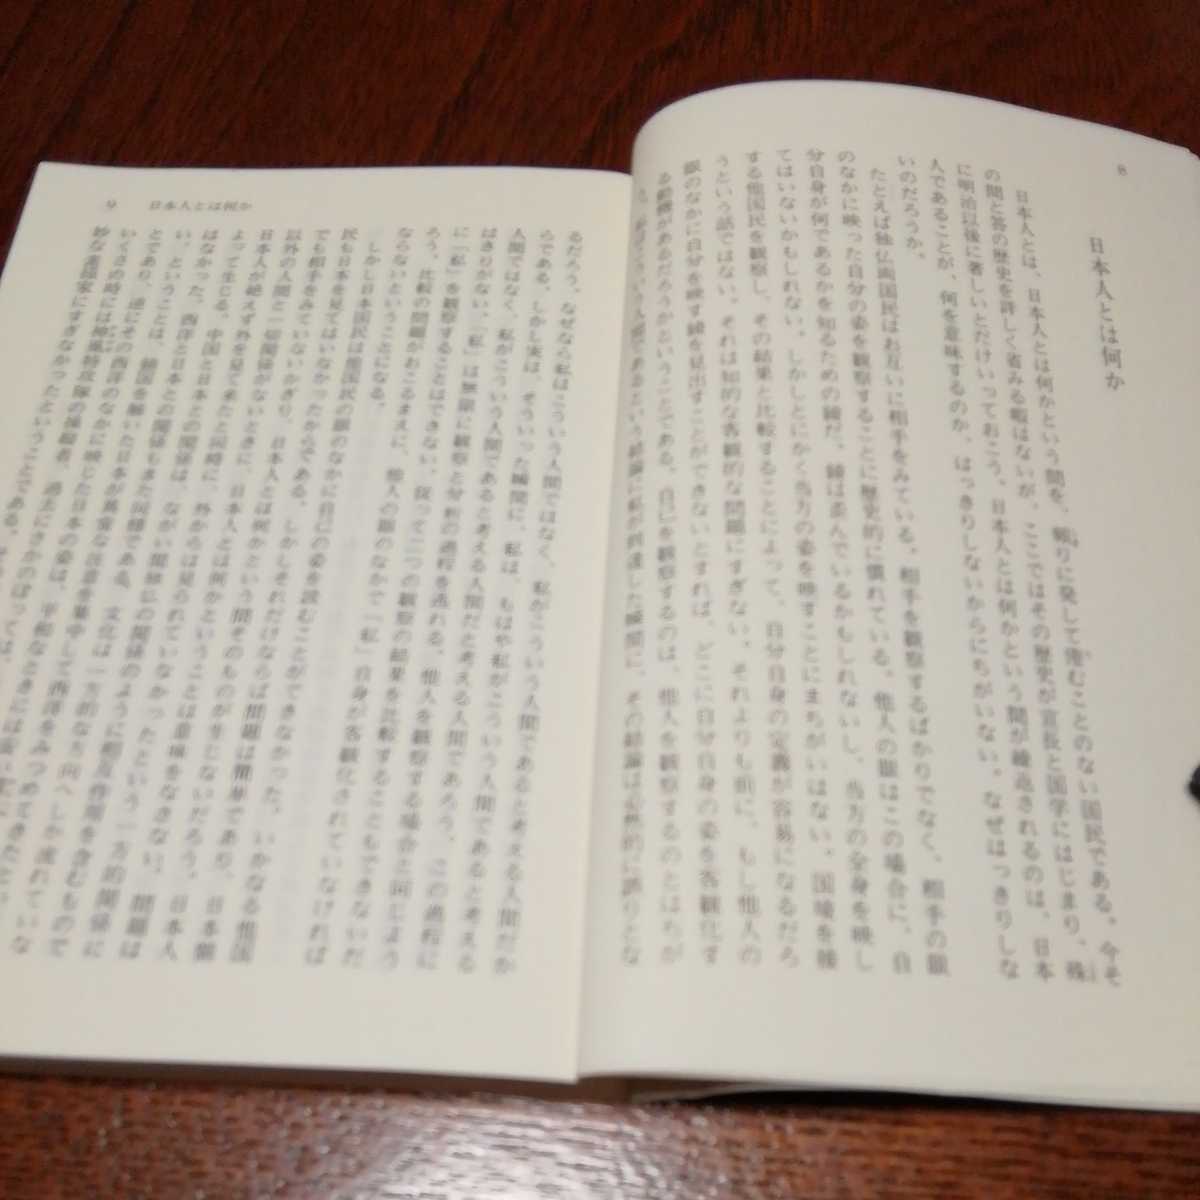 8
日本人とは何か
日本人とは、日本人とは何かという問を、頻りに発して倦むことのない国民である。今そ
の問と答の歴史を詳しく省みる暇はないが、ここではその歴史が宣長と国学にはじまり、殊
に明治以後に著しいとだけいっておこう。日本人とは何かという問が繰返されるのは、日本
人であることが、何を意味するのか、はっきりしないからにちがいない。なぜはっきりしな
いのだろうか。
たとえば独仏両国民はお互いに相手をみている。相手を観察するばかりでなく、相手の眼
のなかに映った自分の姿を観察することに歴史的に慣れている。他人の眼はこの場合に、自
分自身が何であるかを知るための鏡だ。鏡は歪んでいるかもしれないし、当方の全身を映し
てはいないかもしれない。しかしとにかく当方の姿を映すことにまちがいはない。国境を接
する他国民を観察し、その結果と比較することによって、自分自身の定義が容易になるだろ
うという話ではない。それは知的な客観的な問題にすぎない。それよりも前に、もし他人の
眼のなかに自分を映す鏡を見出すことができないとすれば、どこに自分自身の姿を客観化す
る動機があるだろうかということである。自己を観察するのは、他人を観察するのとはちが
う。私がこういう人間であるという結論に私が到達した瞬間に、その結論は必然的に誤りとな
9 日本人とは何か
るだろう。なぜなら私はこういう人間ではなく、私がこういう人間であると考える人間だか
らである。しかし実は、そういった瞬間に、私は、もはや私がこういう人間であると考える
人間ではなく、私がこういう人間であると考える人間だと考える人間であろう。この過程に
はきりがない。「私」は無限に観察と分析の過程を逃れる。他人を観察する場合と同じよう
に「私」を観察することはできない。従って二つの観察の結果を比較することもできないだ
ろう。比較の問題がおこるまえに、他人の眼のなかで「私」自身が客観化されていなければ
ならないということになる。
しかし日本国民は他国民の眼のなかに自己の姿を読むことができなかった。いかなる他国
民も日本を見てはいなかったからである。しかしそれだけならば問題は簡単であり、日本側
でも相手をみていないかぎり、日本人とは何かという問そのものが生じないだろう。日本人
以外の人間と一切関係がないときに、日本人とは何かということは意味をなさない。問題は
日本人が絶えず外を見て来たと同時に、外からは見られていなかったという一方的関係に
よって生じる。中国と日本との関係は、ながい間独仏の関係のように相互作用を含むもので
はなかった。西洋と日本との関係もまた同様である。文化は一方的な方向へしか流れていな
い、ということは、鎖国を解いた日本が異常な注意を集中して西洋をみつめてきたとい
とであり、逆にその西洋のなかに映じた日本の姿は、平和なときには
いくさの時には神風特攻隊の操縦者、過去にさかのぼっては、
妙な 家にすぎなかったということである。